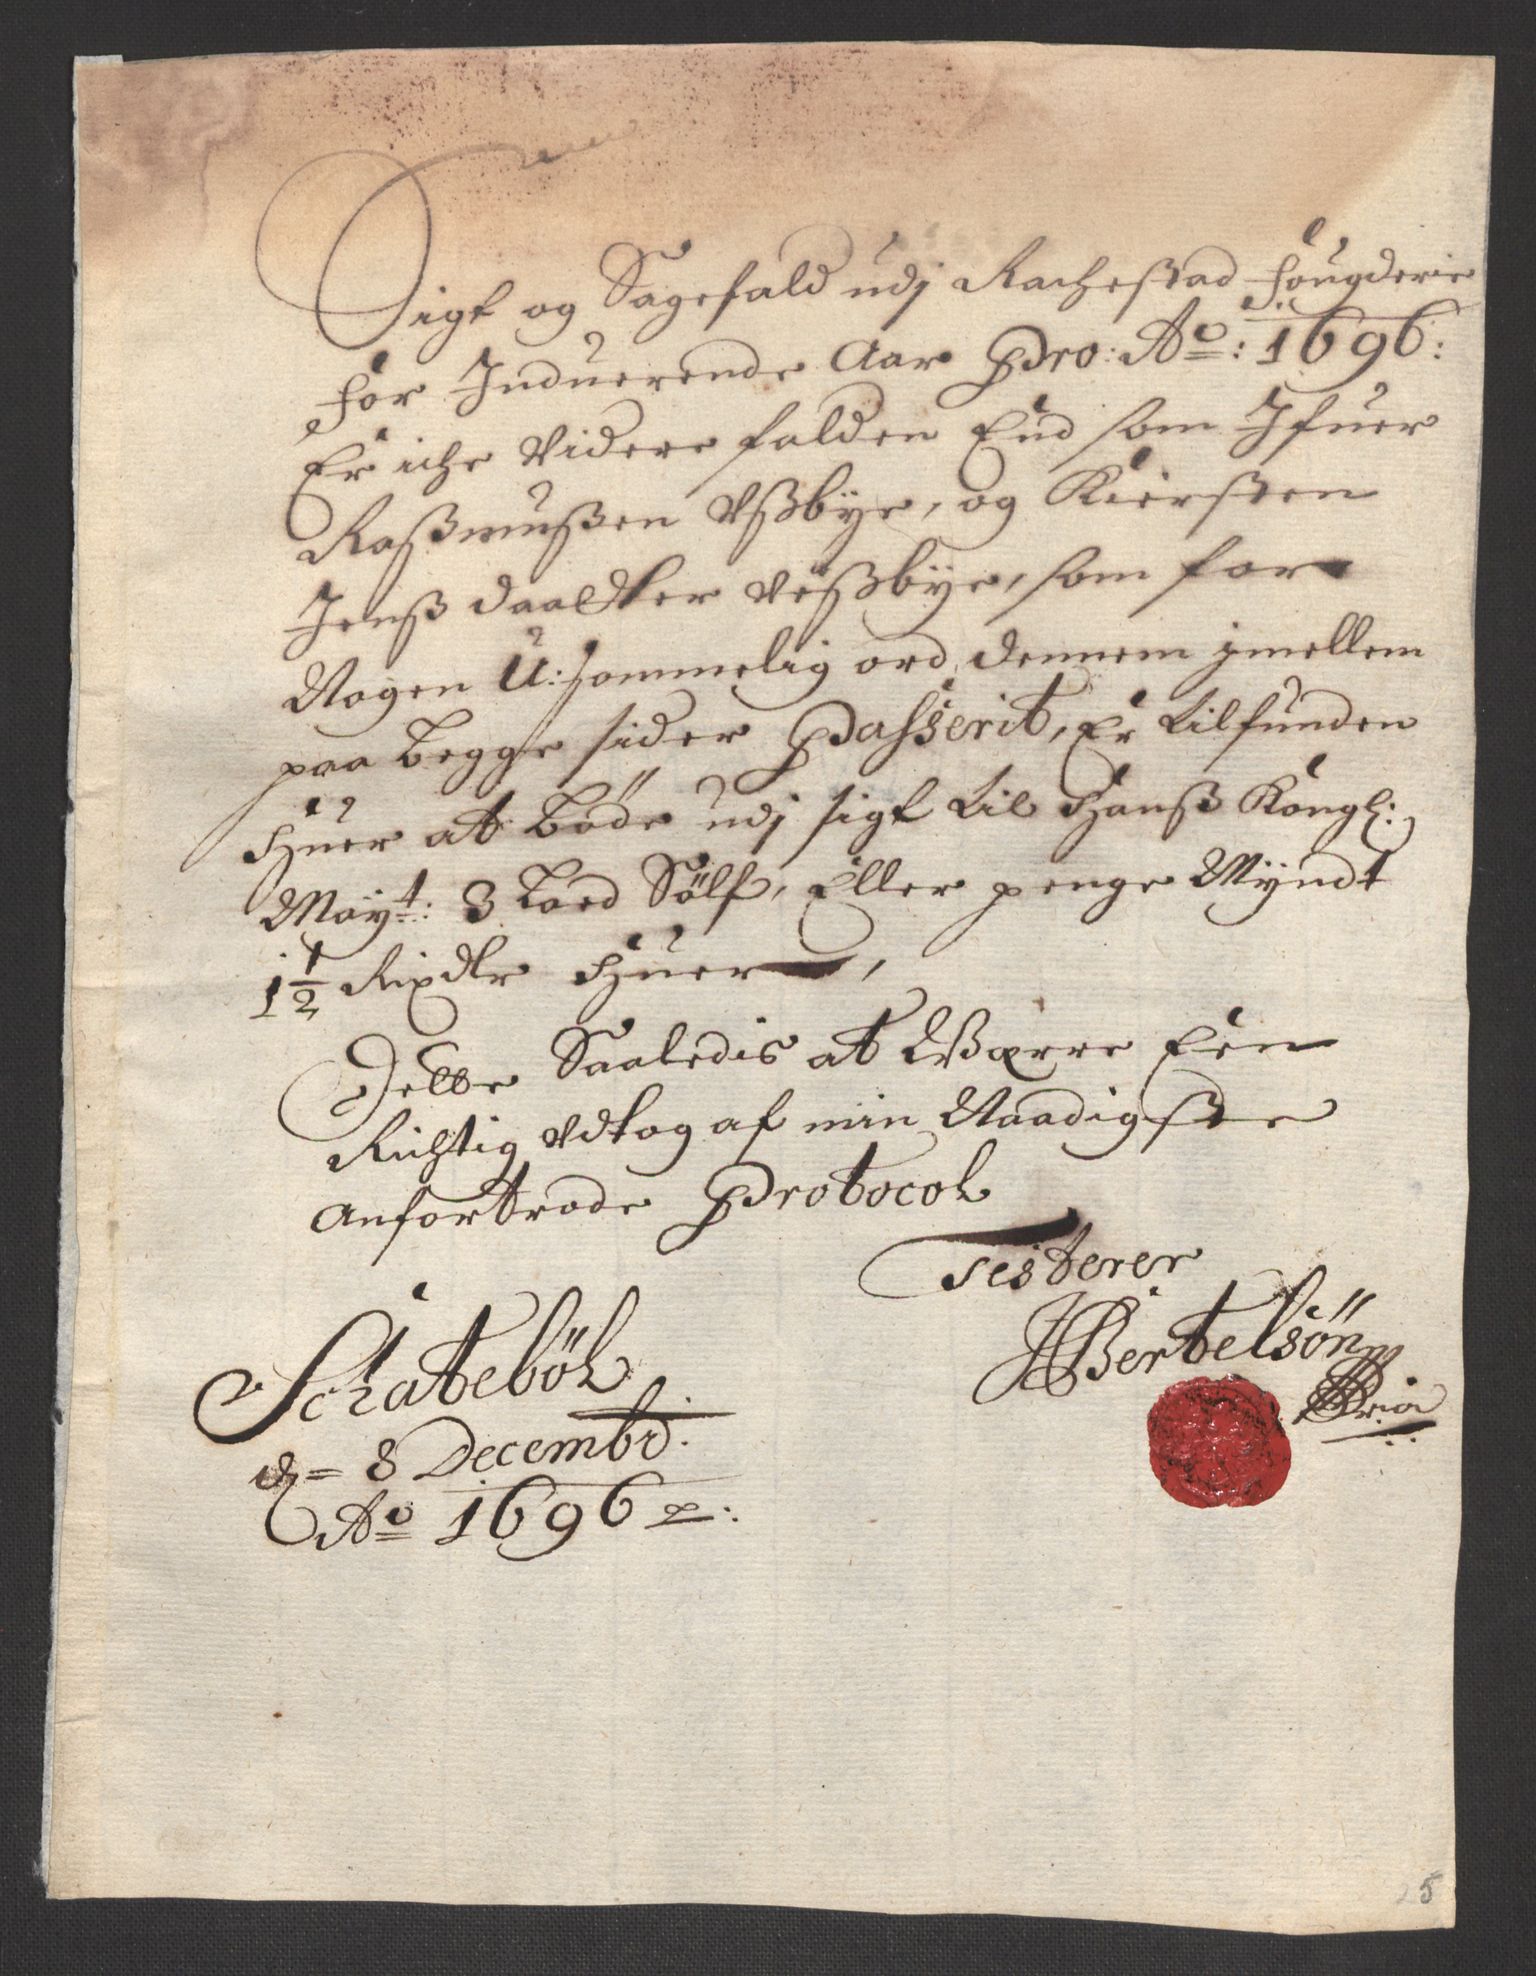 Sigt og Sagefald udj Rachestad fougderie
for Induerende Aar Pro: Ao: 1696:
Er iche Videre falden End som Ifuer
Rasmusßen Vßbÿe, og Kiersten
Jenß daatter Veßbÿe, som for
Nogen U:sømmelig ord, dennem jmellem
paa begge sider Passerit, Er tilfunden
Huer at bøde udj sigt til Hanß Kongl:
Mayt: 3 Lod Sölf, Eller penge Mÿndt
1½ Rixdlr Huer,
Dette Saaledis at Værre Een
Richtig Vdtog af min Naadigste
Anfortrode Protocol
Testerer
HBertelsön
Pria
Schateböl
d= 8 Decembr:
Ao 1696
5